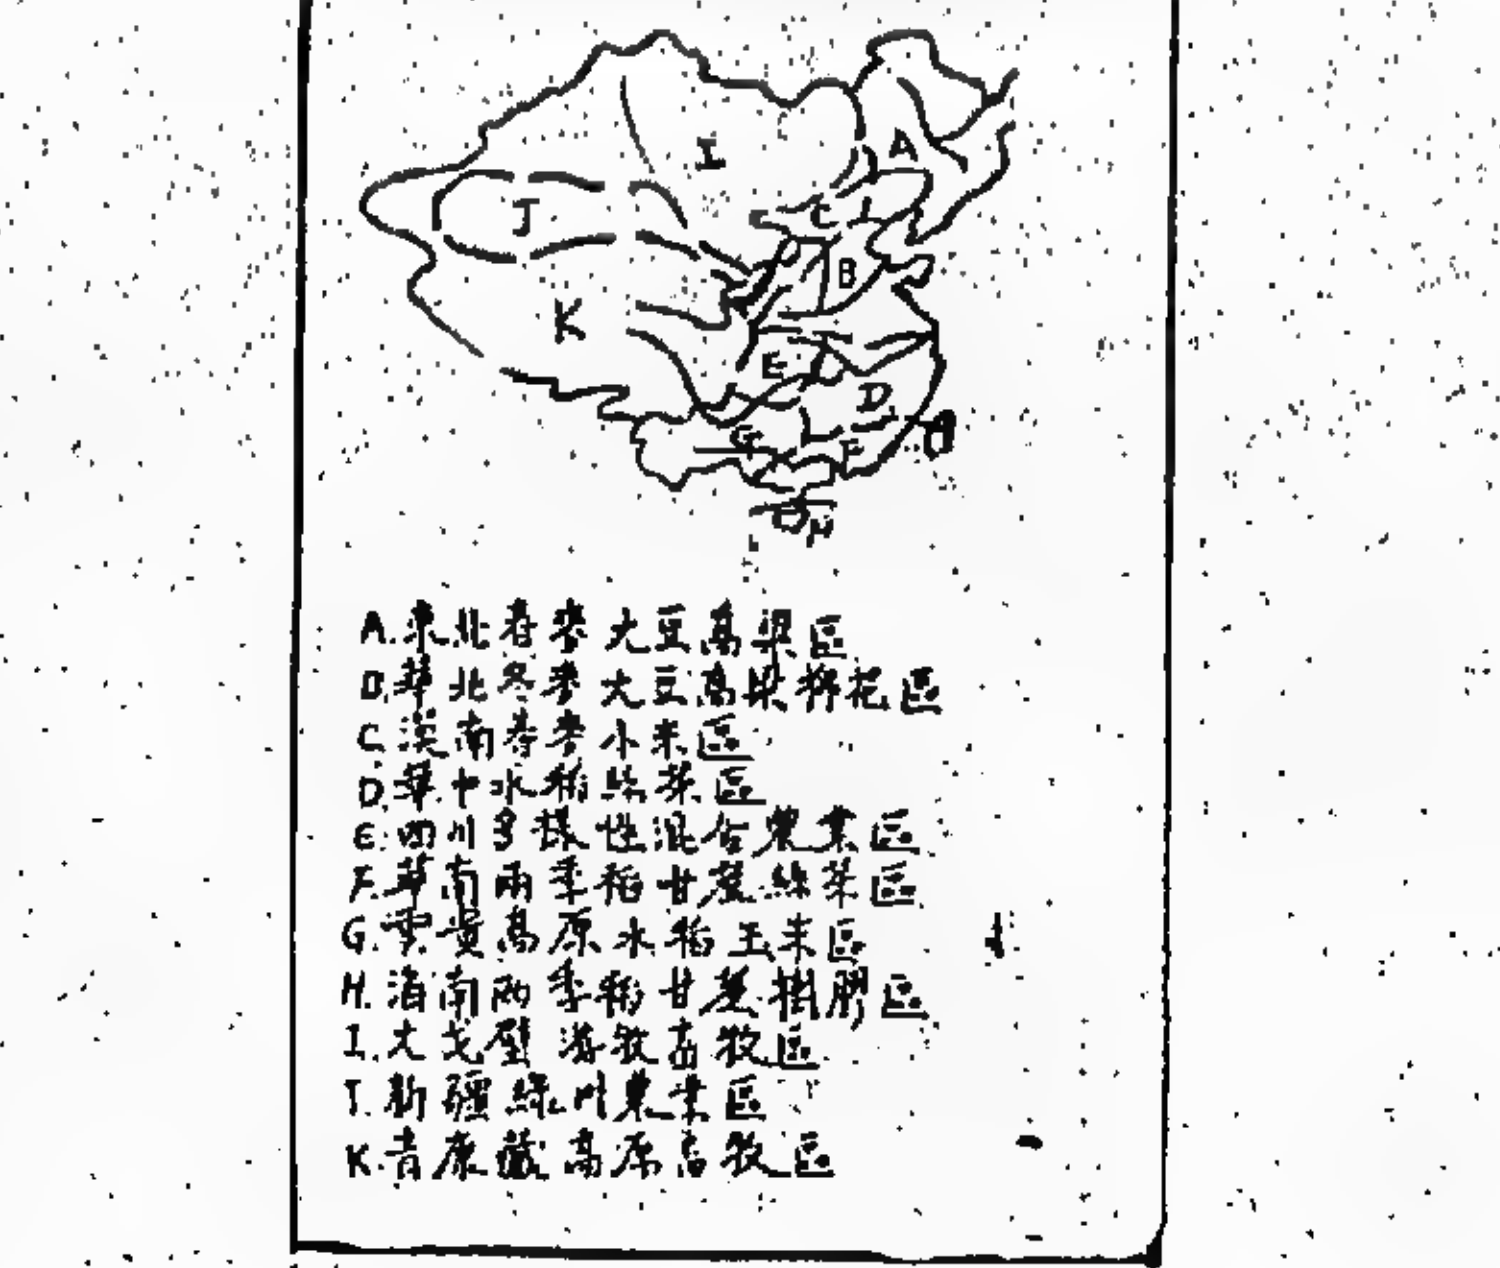 I
A
J
C
B
K
E
D
G
F
H
A. 東北春麥大豆高粱區
B. 華北冬麥大豆高粱棉花區
C. 漠南春麥小米區
D. 華中水稻絲茶區
E. 四川多樣性混合農業區
F. 華南兩季稻甘蔗絲茶區
G. 雲貴高原水稻玉米區
H. 海南兩季稻甘蔗樹膠區
I. 大戈壁游牧畜牧區
J. 新疆綠州農業區
K. 青康藏高原畜牧區